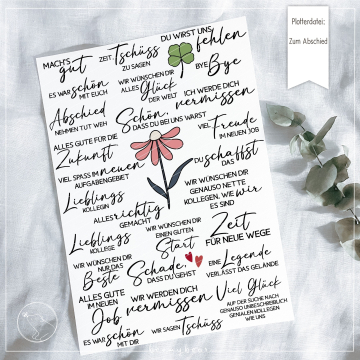 Plotterdatei:
Zum Abschied
DU WIRST UNS
fehlen
MACH'S gut
ZEIT Tschüss ZU SAGEN
BYE Bye
ES WAR schön MIT EUCH
WIR WÜNSCHEN DIR
ALLES Glück
DER WELT
ICH WERDE DICH
vermissen
Abschied
NEHMEN TUT WEH
Schön,
DASS DU BEI UNS WARST
VIEL Freude
IM NEUEN JOB
ALLES GUTE FÜR DIE
Zukunft
VIEL SPASS IM neuen
AUFGABENGEBIET
DU schaffst
DAS
Lieblings
KOLLEGIN
WIR WÜNSCHEN DIR
GENAUSO NETTE
KOLLEGEN, WIE wir
ES SIND
ALLES richtig
GEMACHT
Lieblings
KOLLEGE
WIR WÜNSCHEN DIR
EINEN GUTEN
Start
Zeit
FÜR NEUE WEGE
WIR WÜNSCHEN DIR
NUR DAS
Beste
Schade,
DASS DU GEHST
EINE Legende
VERLÄSST DAS GELÄNDE
ALLES GUTE
IM NEUEN
Job
WIR WERDEN DICH
vermissen
Viel Glück
AUF DER SUCHE NACH
GENAUSO UNBESCHREIBLICH
GENIALEN KOLLEGEN
WIE UNS
ES WAR schön
MIT DIR
WIR SAGEN Tschüss